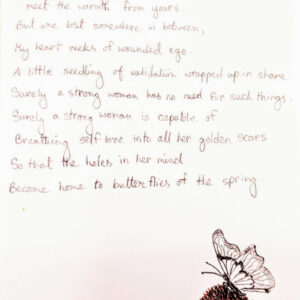 meet the warmth from yours.
But are lost somewhere in between,
My heart reeks of wounded ego.
A little seedling of validation wrapped up in shame.
Surely a strong woman has no need for such things.
Surely a strong woman is capable of
Breathing self love into all her golden scars
So that the holes in her mind
Become home to butterflies of the spring.